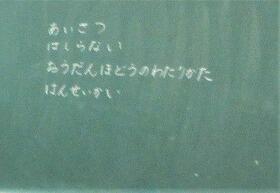 あいさつ
はしらない
おうだんほどうのわたりかた
はんせいかい